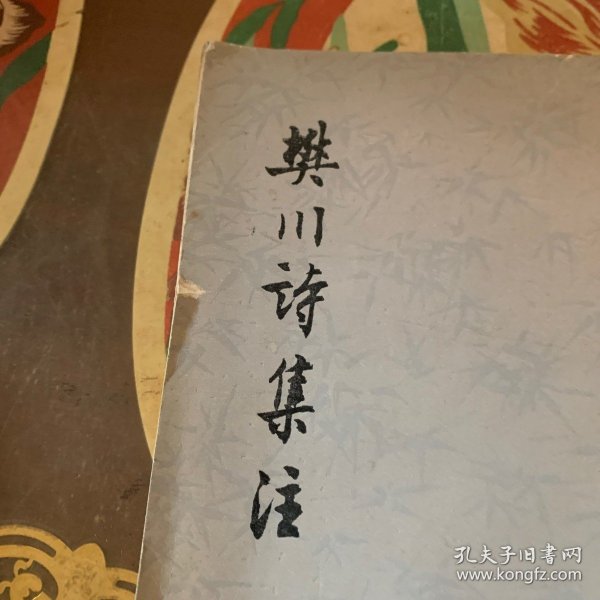 樊川詩集注
孔夫子旧書网
www.kongfz.com